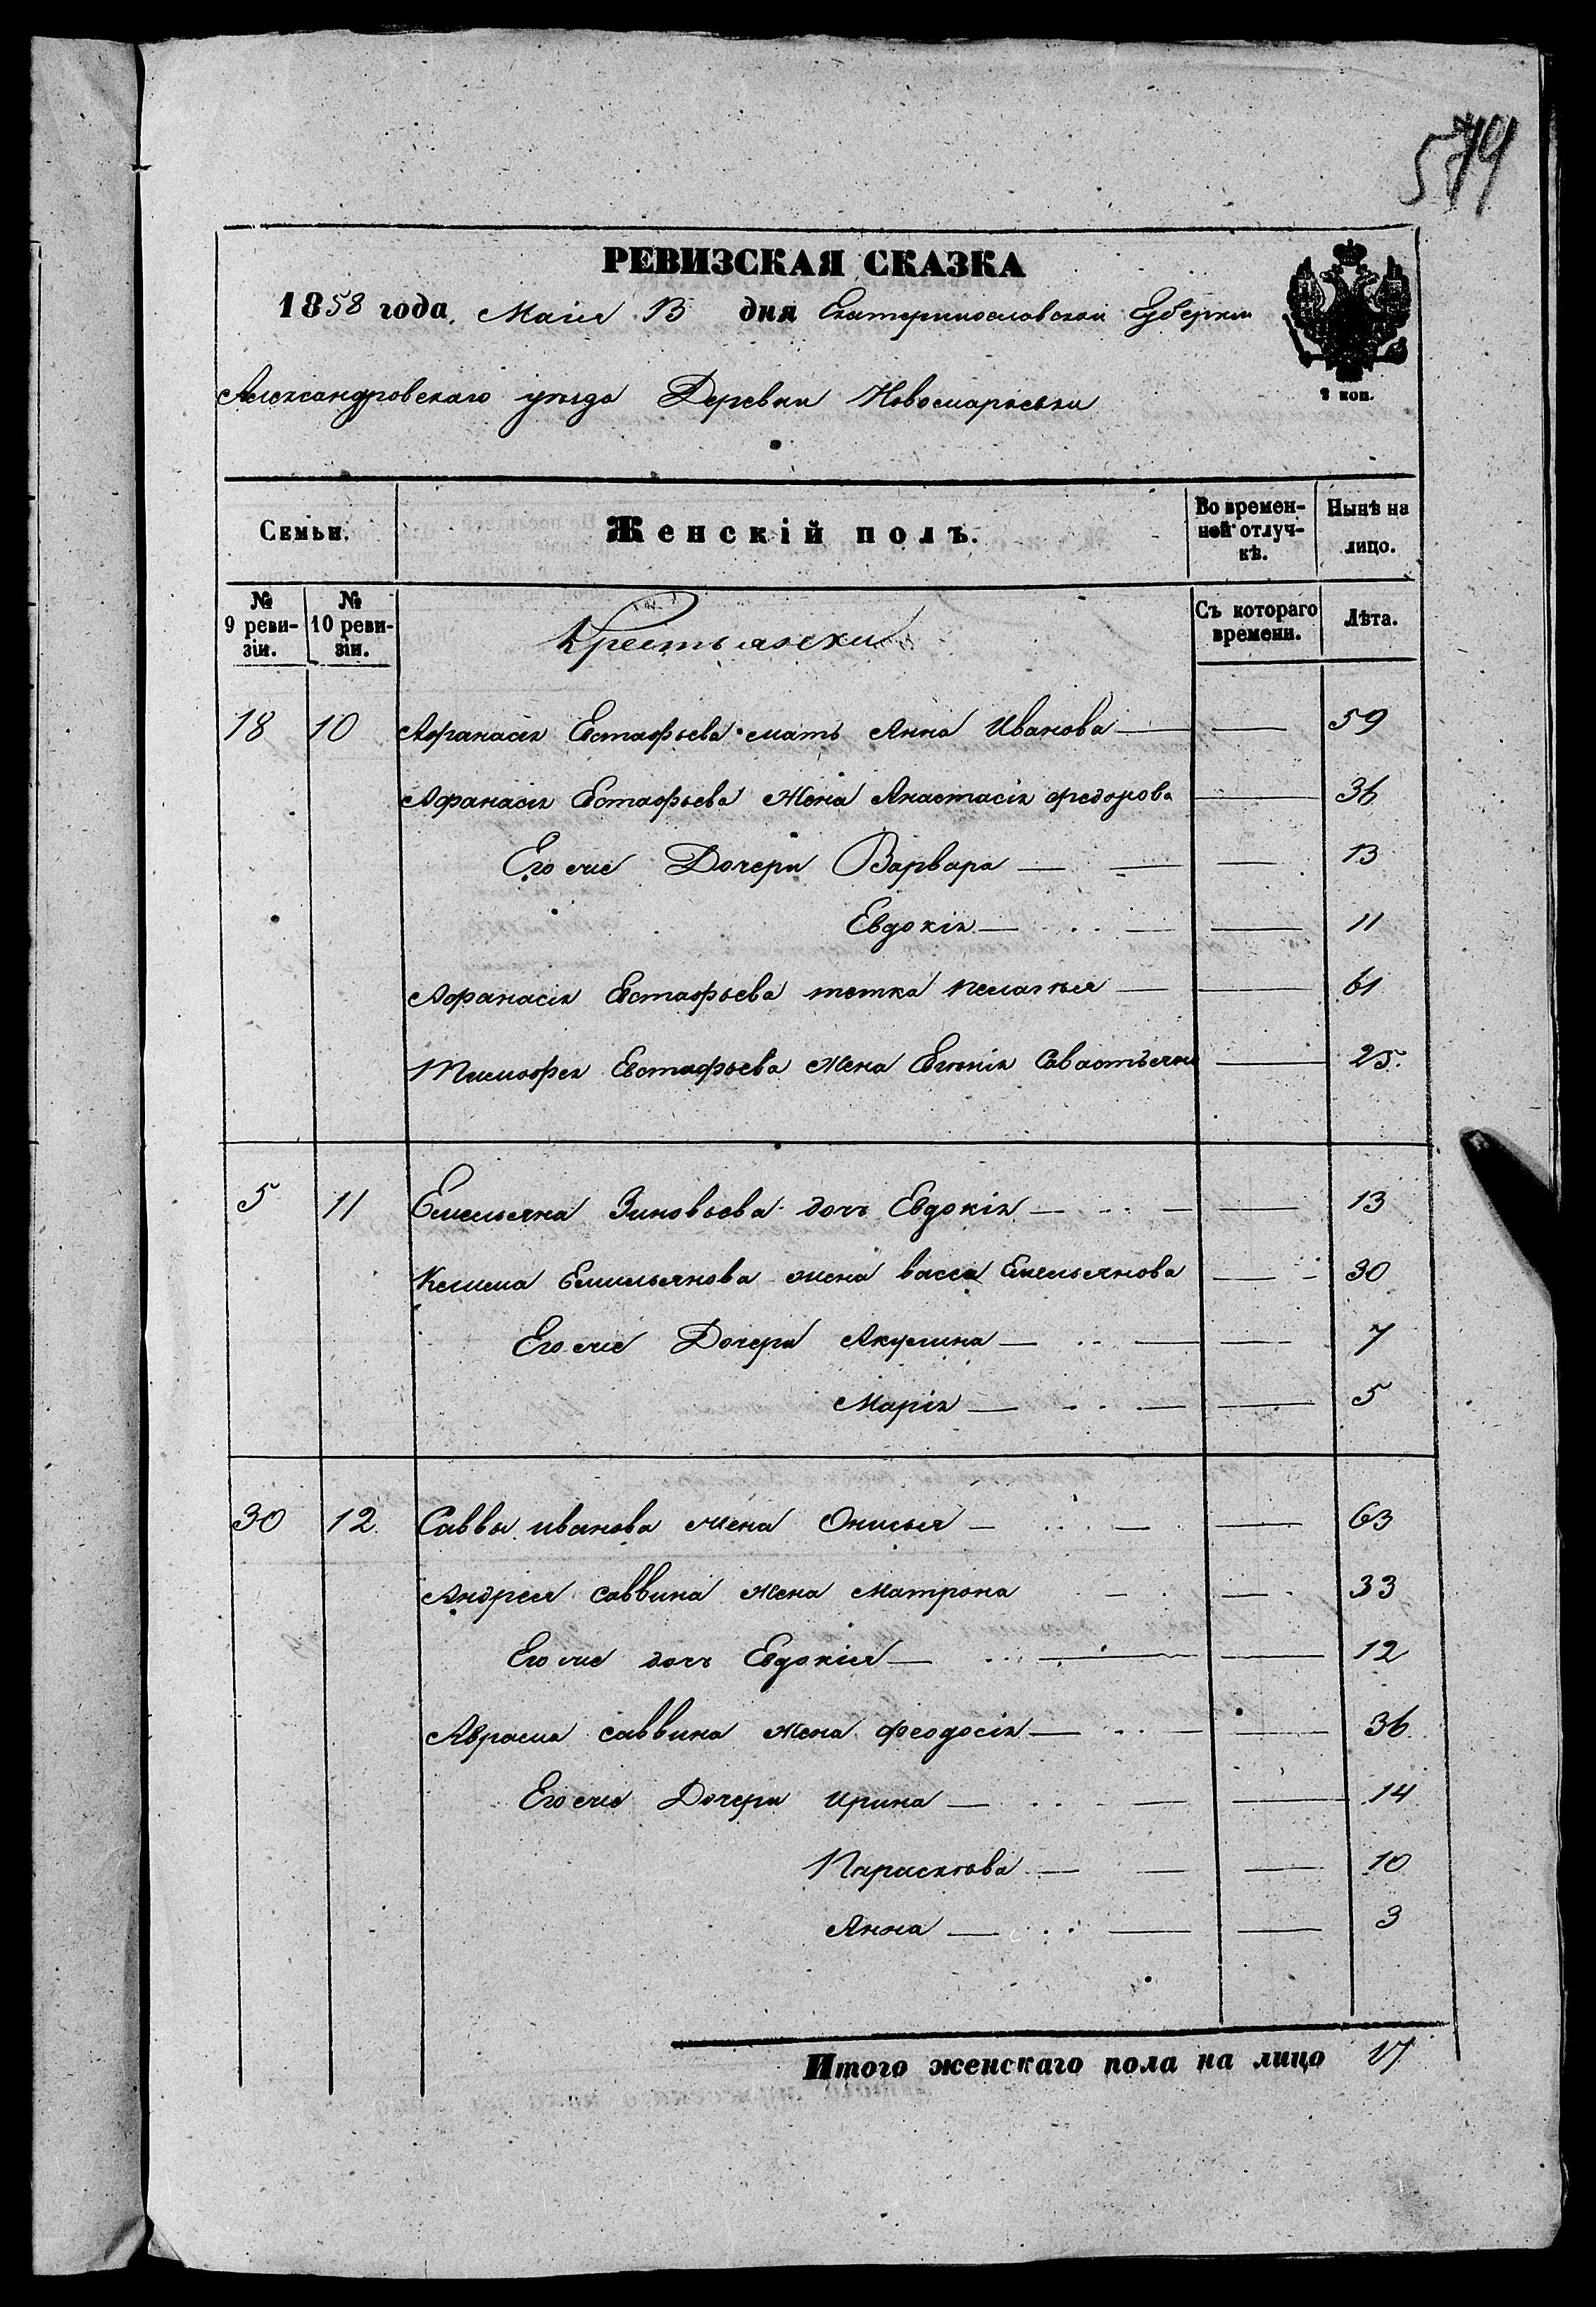 579
РЕВИЗСКАЯ СКАЗКА
1858 года, Маія 13 дня Екатеринославской Губерніи
2 коп.
Александровскаго уѣзда Деревни Новомарьевки
Семьи. Женскій полъ. Во времен-ной отлуч-кѣ. Нынѣ на лицо.
№ 9 реви-зіи. № 10 реви-зіи. Крестьянски Съ котораго времени. Лѣта.
18 10 Афанасія Евстафьева мать Анна Иванова — — 59
Афанасія Евстафьева Жена Анастасія Федорова — 36
Его же Дочери Варвара — — — 13
Евдокія — — — 11
Афанасія Евстафьева тетка Пелагѣя — — 61
Тимофея Евстафьева Жена Евгенія Савастьяно — 25.
5 11 Емельяна Зиновьева дочь Евдокія — — — 13
Климa Емильянова жена Васса Емельянова — — 30
Его же Дочери Акулина — — — 7
Марія — — — 5
30 12 Саввы иванова жена Онисья — — — 63
Андрея саввина Жена Матрона — — 33
Его же дочь Евдокія — — — 12
Абрама саввина Жена Феодосія — — — 36
Его же Дочери Ирина — — — 14
Парасковья — — — 10
Анна — — — 3
Итого женскаго пола на лицо 17